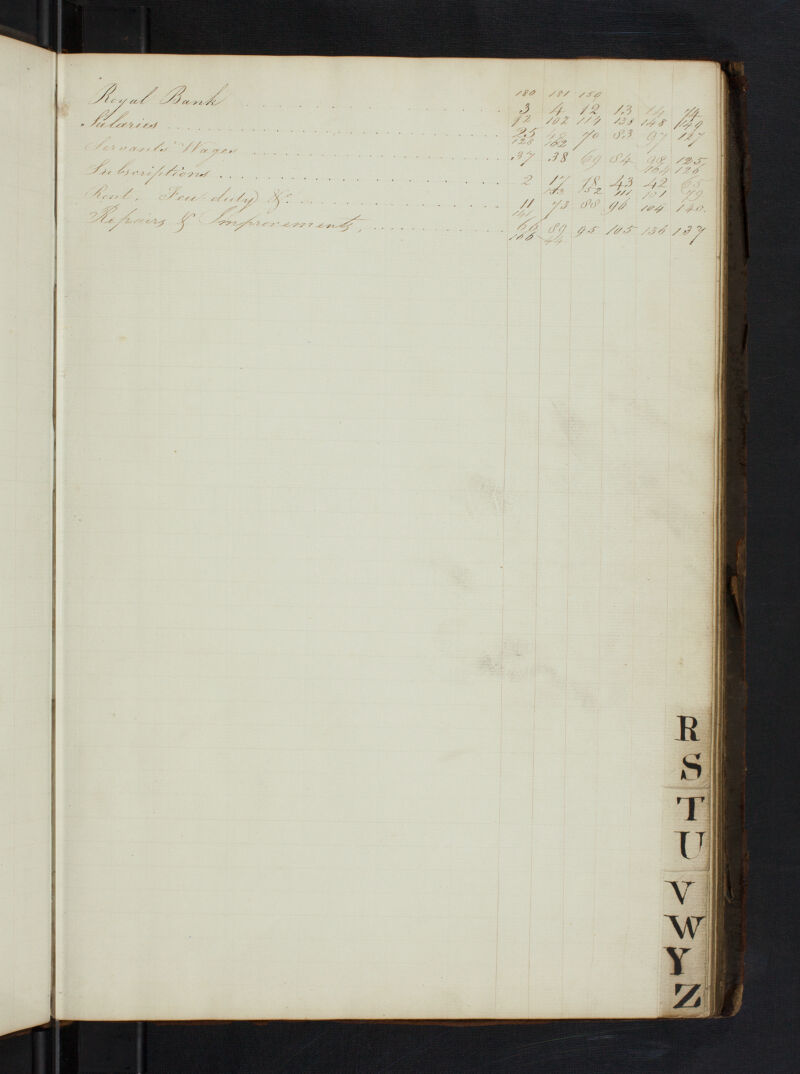 180 181 150
Royal Bank . . . 3 4 12 13 14 74
Salaries . . . 72 102 114 138 148 149
25 48 70 83 97 127
Servants' Wages . . . 128 162
37 38 69 84 98 125
Subscriptions . . . 164 126
2 17 18 43 42 65
Rent, Feu duty &c . . . 152 111 79
11 73 88 96 104 140
Repairs & Improvements, . . . 141
66 89 95 105 136 137
166 44
R
S
T
U
V
W
Y
Z